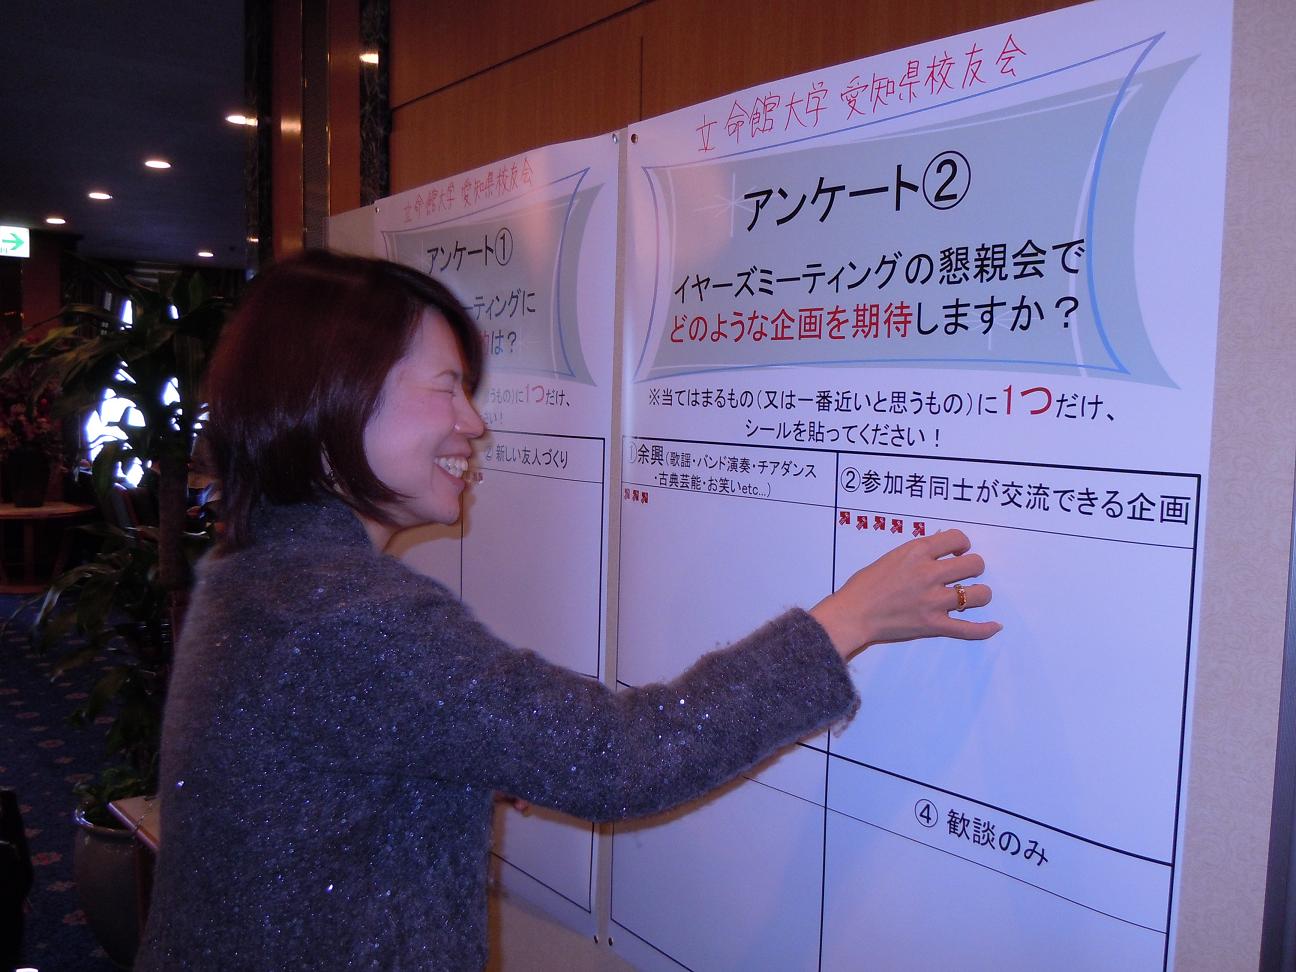 立命館大学 愛知県校友会
アンケート①
ーティングに
は？
うもの）に1つだけ、
い！
② 新しい友人づくり
立命館大学 愛知県校友会
アンケート②
イヤーズミーティングの懇親会で
どのような企画を期待しますか？
※当てはまるもの（又は一番近いと思うもの）に1つだけ、
シールを貼ってください！
①余興（歌謡・バンド演奏・チアダンス
・古典芸能・お笑いetc...）
②参加者同士が交流できる企画
④ 歓談のみ